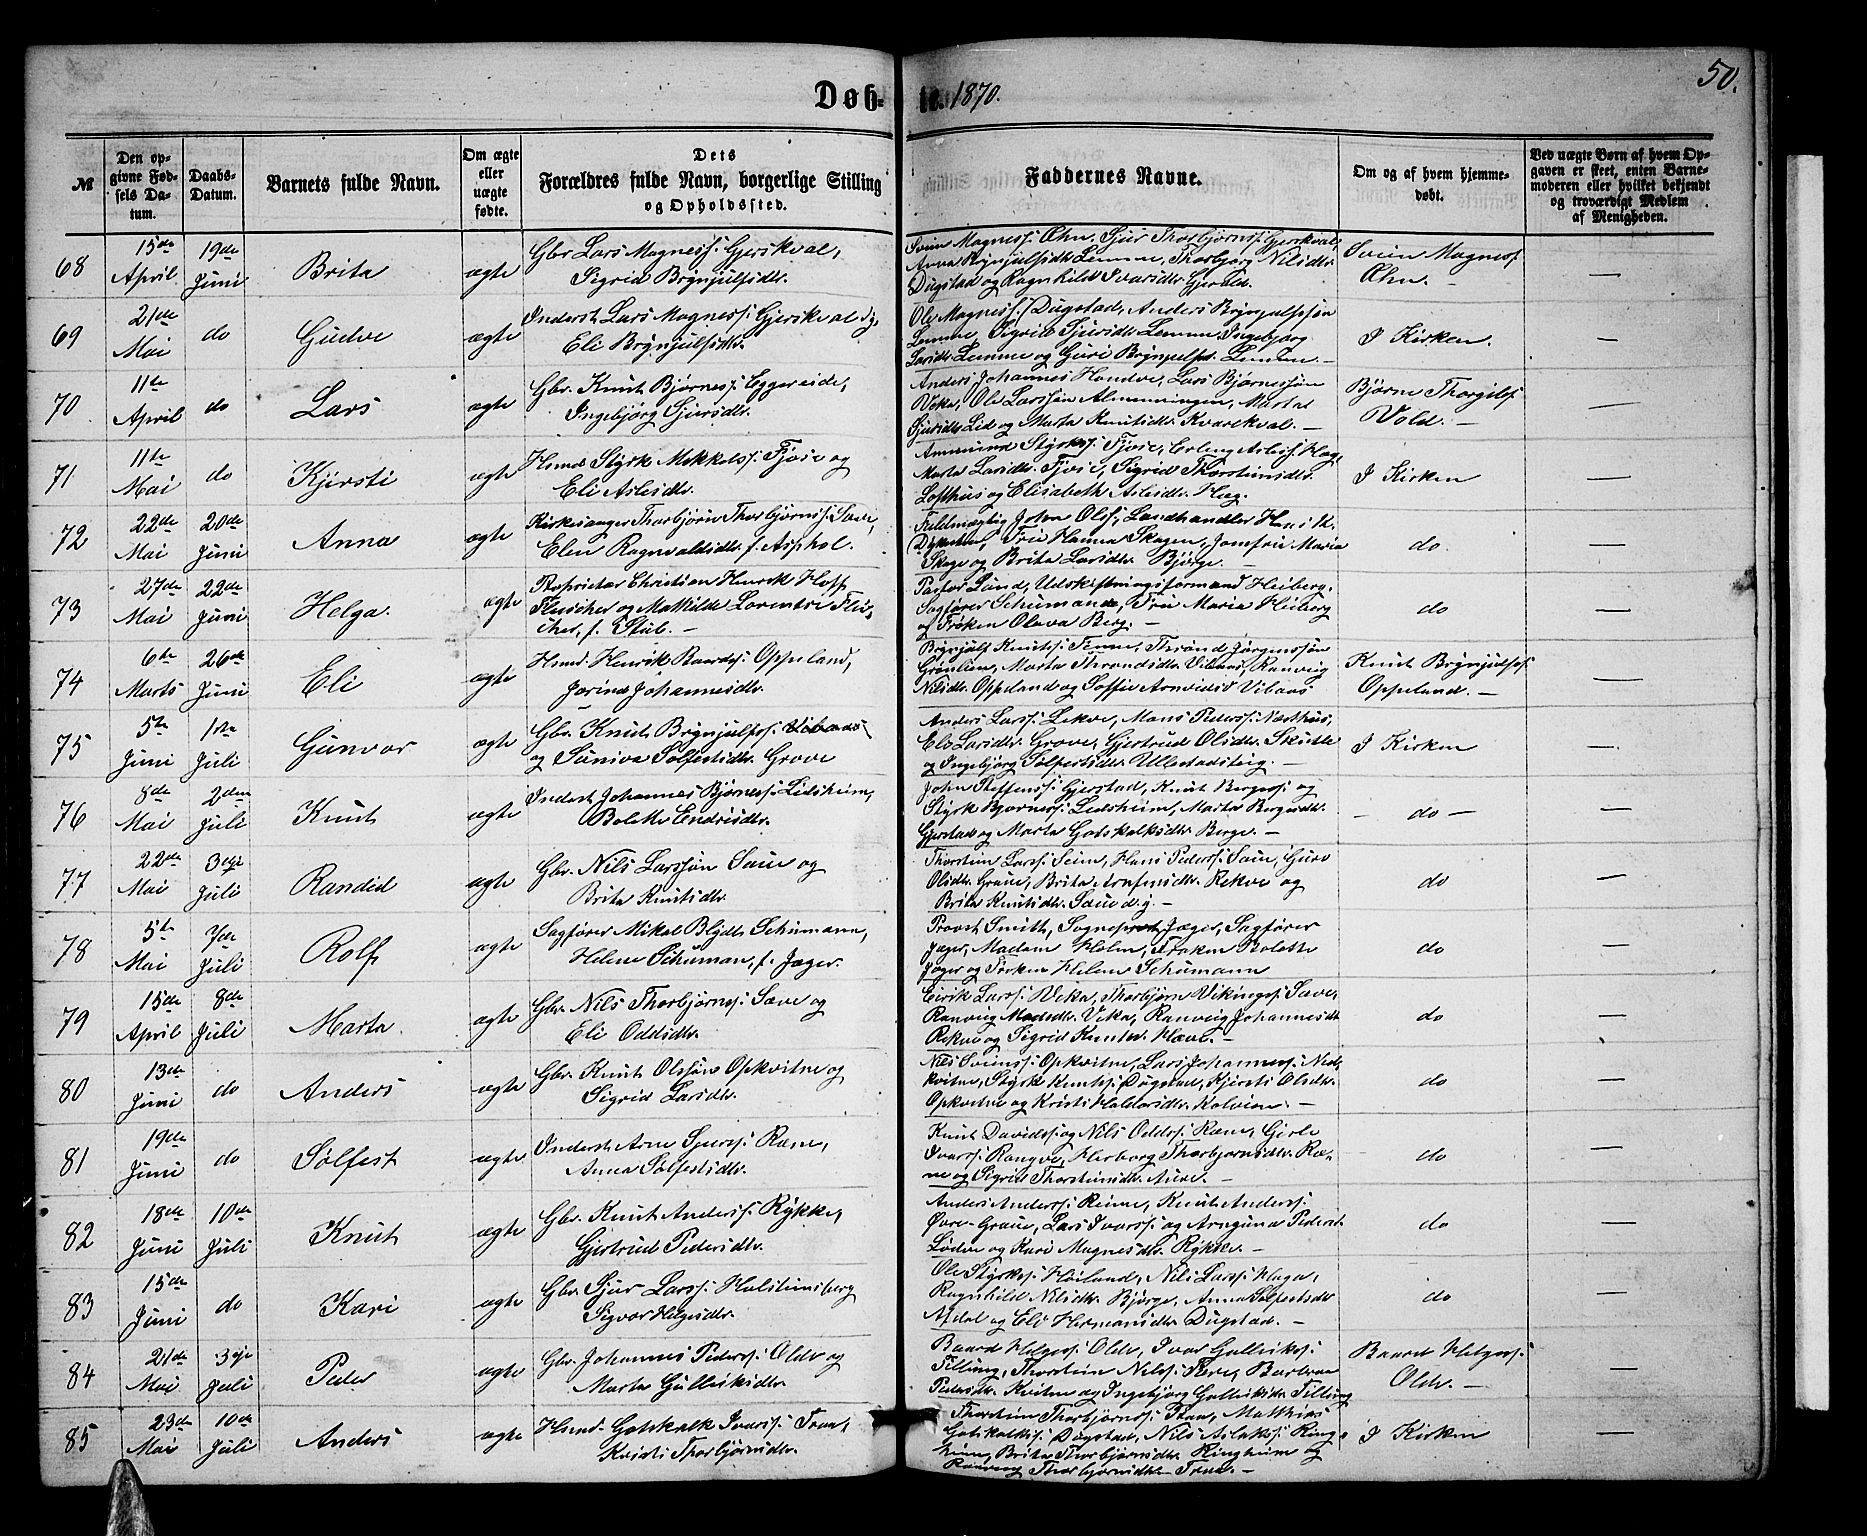 Døb-
te. 1870.
50.
№
Den op-
givne Fød-
sels Da-
tum.
Daabs-
Datum.
Barnets fulde Navn.
Om ægte
eller
uægte
fødte.
Dets
Forældres fulde Navn, borgerlige Stilling
og Opholdssted.
Faddernes Navne.
Om og af hvem hjemme-
døbt.
Ved uægte Børn af hvem Op-
gaven er skeet, enten Barne-
moderen eller hvilket bekjendt
og troværdigt Medlem
af Menigheden.
68
15de
April
19de
Juni
Brita
ægte
Gbr. Lars Magness: Gjerskval,
Sigrid Brynjulfsdtr.
Svein Magness: Øhn, Sjur Thorbjørnss: Gjerskval,
Anna Brynjulfsdtr Lemme, Thorbjørg Nilsdtr.
Dugstad og Ragnhild Ivarsdtr
Svein Magness
Øhn.
—
69
21de
Mai
do
Gudve
ægte
Inderst Lars Magness: Gjerskval
Eli Brynjulfsdtr.
Ole Magness: Dugstad, Anders Brynjulfssøn
Lemme, Sigrid Sjursdtr. Lemme, Ingebjørg
Larsdtr Lemme og Guri Brynjulfsd. Lemme. —
I Kirken.
—
70
11te
April
do
Lars
ægte
Gbr. Knut Bjørness: Eggereide,
Ingebjørg Sjursdtr.
Anders Johannes Hondve, Lars Bjørnessøn
Veka, Ole Larssøn Almenningen, Marta
Sjursdtr Lid og Marta Knutsdtr Kvarekval. —
Bjørne Thorgilss
Vold. —
—
71
11te
Mai
do
Kjersti
ægte
Husmd Styrk Mikkels: Tjose og
Eli Aslesdtr.
Ammund Styrks: Tjose, Erling Asless: Hæg,
Marta Larsdtr. Tjose, Sigrid Thorsteinsdtr.
Lofthus og Elisabeth Aslesdtr. Hæg.
I Kirken
—
72
22de
Mai
20de
Juni
Anna
ægte
Kirkesanger Thorbjørn Thorbjørnss: Sæve,
Elen Ragnvaldsdtr. f. Asphol.
Fuldmægtig John Olss:, Landhandler Hans K.
Frue Hanna Skagen, Jomfru Maria
Skage og Brita Larsdtr. Bjørge. —
do.
—
73
27de
Mai
22de
Juni
Helga.
ægte
Proprietær Christian Henrik Hoff
Fleischer og Mathilde Lorentze Flei-
scher, f. Stub. —
Pastor Lund, Udskiftningsformand Heiberg,
Sagfører Schumann, Frue Maria Heiberg
og Frøken Olava Berg. —
do
—
74
6te
Marts
26de
Juni
Eli
ægte
Husmd. Henrik Baards: Oppeland,
Jorind Johannesdtr.
Brynjulf Knuts: Tenne, Thrond Jørgenssøn
Grønlien, Marta Throndsdtr Vibaas, Ranveig
Nilsdtr. Oppeland og Soffie Arnvidsd Vibaas
Knut Brynjulfss
Oppeland. —
—
75
5te
Juni
1ste
Juli
Gunvor
ægte
Gbr. Knut Brynjulfss: Vibaas
og Suniva Sølfestsdtr. Grove
Anders Larss: Lekve, Mons Peders: Nedthus,
Els Larsdtr. Grove, Gjertrud Olsdtr. Skutle
og Ingebjørg Sølfestsdtr. Ullestadsteig. —
I Kirken
—
76
8de
Mai
2den
Juli
Knut
ægte
Inderst Johannes Bjørness: Lidsheim,
Bolette Endresdtr.
John Steffens: Gjerstad, Knut Bergess: og
Styrk Bjørness: Lidsheim, Marta Bergesdtr.
Gjerstad og Marta Gotskalksdtr Berge. —
do —
—
77
22de
Mai
3dje
Juli
Randid
ægte
Gbr. Nils Larssøn Saue og
Brita Knutsdtr.
Thorstein Larss: Seim, Hans Peders: Saue, Guro
Olsdtr. Graue, Brita Arnfinsdtr. Rekve og
Brita Knutsdtr. Saue d.y. —
do
—
78
5te
Mai
7de
Juli
Rolf
ægte
Sagfører Mikal Blydt Schumann,
Helene Schuman, f. Jæger.
Provst Smith, Sogneprest Jæger, Sagfører
Jæger, Madam Holm, Frøken Bolette
Jæger og Frøken Helene Schumann
do
—
79
15de
April
8de
Juli
Marta
ægte
Gbr. Nils Thorbjørns: Sæve og
Eli Oddsdtr.
Eirik Larss: Veka, Thorbjørn Vikings: Sæve,
Ranveig Madsdtr. Veka, Ranveig Johannesdt
Rekve og Sigrid Knutsd. Hæve. —
do
—
80
13de
Juni
do
Anders
ægte
Gbr. Knut Olssøn Opkvitne og
Sigrid Larsdtr.
Nils Sveins: Opkvitne, Lars Johanness: Ned-
kvitne, Styrk Knuts: Dugstad, Kjersti Olsdtr.
Opkvitne og Kristi Haldorsdtr. Kolvien. —
do
—
81
19de
Juni
do
Sølfest
ægte
Inderst Arne Sjurss: Ræne,
Anna Sølfestsdtr.
Knut Davids: og Nils Odds: Ræne, Gjerle
Ivars: Rongve, Herborg Thorbjørnsdtr. Ræ-
ne og Sigrid Thorsteinsdtr.
do
—
82
18de
Juni
10de
Juli
Knut
ægte
Gbr. Knut Anders: Rykke,
Gjertrud Pedersdtr.
Anders Anders: Rinne, Knut Anders:
Øvre-Graue, Lars Ivars: og Arnguna Pedersd.
Lødve og Kari Magnesdtr. Rykke. —
do
—
83
15de
Juni
do
Kari
ægte
Gbr. Sjur Larss: Halsteinsberg
Sigvor Helgesdtr.
Ole Styrks: Høiland, Nils Larss: Haga,
Ragnhild Nilsdtr. Bjørge, Anna Sølfestsdtr
Afdal og Eli Hermansdtr. Dugstad. —
do
—
84
21de
Mai
3dje
Juli
Peder
ægte
Gbr. Johannes Peders: Olde og
Marta Gulleiksdtr.
Baard Helges: Olde, Ivar Gulleiks:
Tillung, Thorstein Nils: Fære, Barbra
Pedersdtr. Kvitne og Ingebjørg Gulleiksdtr. Tillung
Baard Helges:
Olde. —
—
85
23de
Mai
10de
Juli
Anders
ægte
Husmd. Gotskalk Ivars: Traa,
Kristi Thorbjørnsdtr.
Thorstein Thorbjørns: Traa, Matthias
Gotskalks: Dugstad, Nils Aslaks: Ring-
heim, Brita Thorbjørnsdtr. Ringheim og
Ranveig Thorbjørnsdtr. Traa. —
I Kirken
—